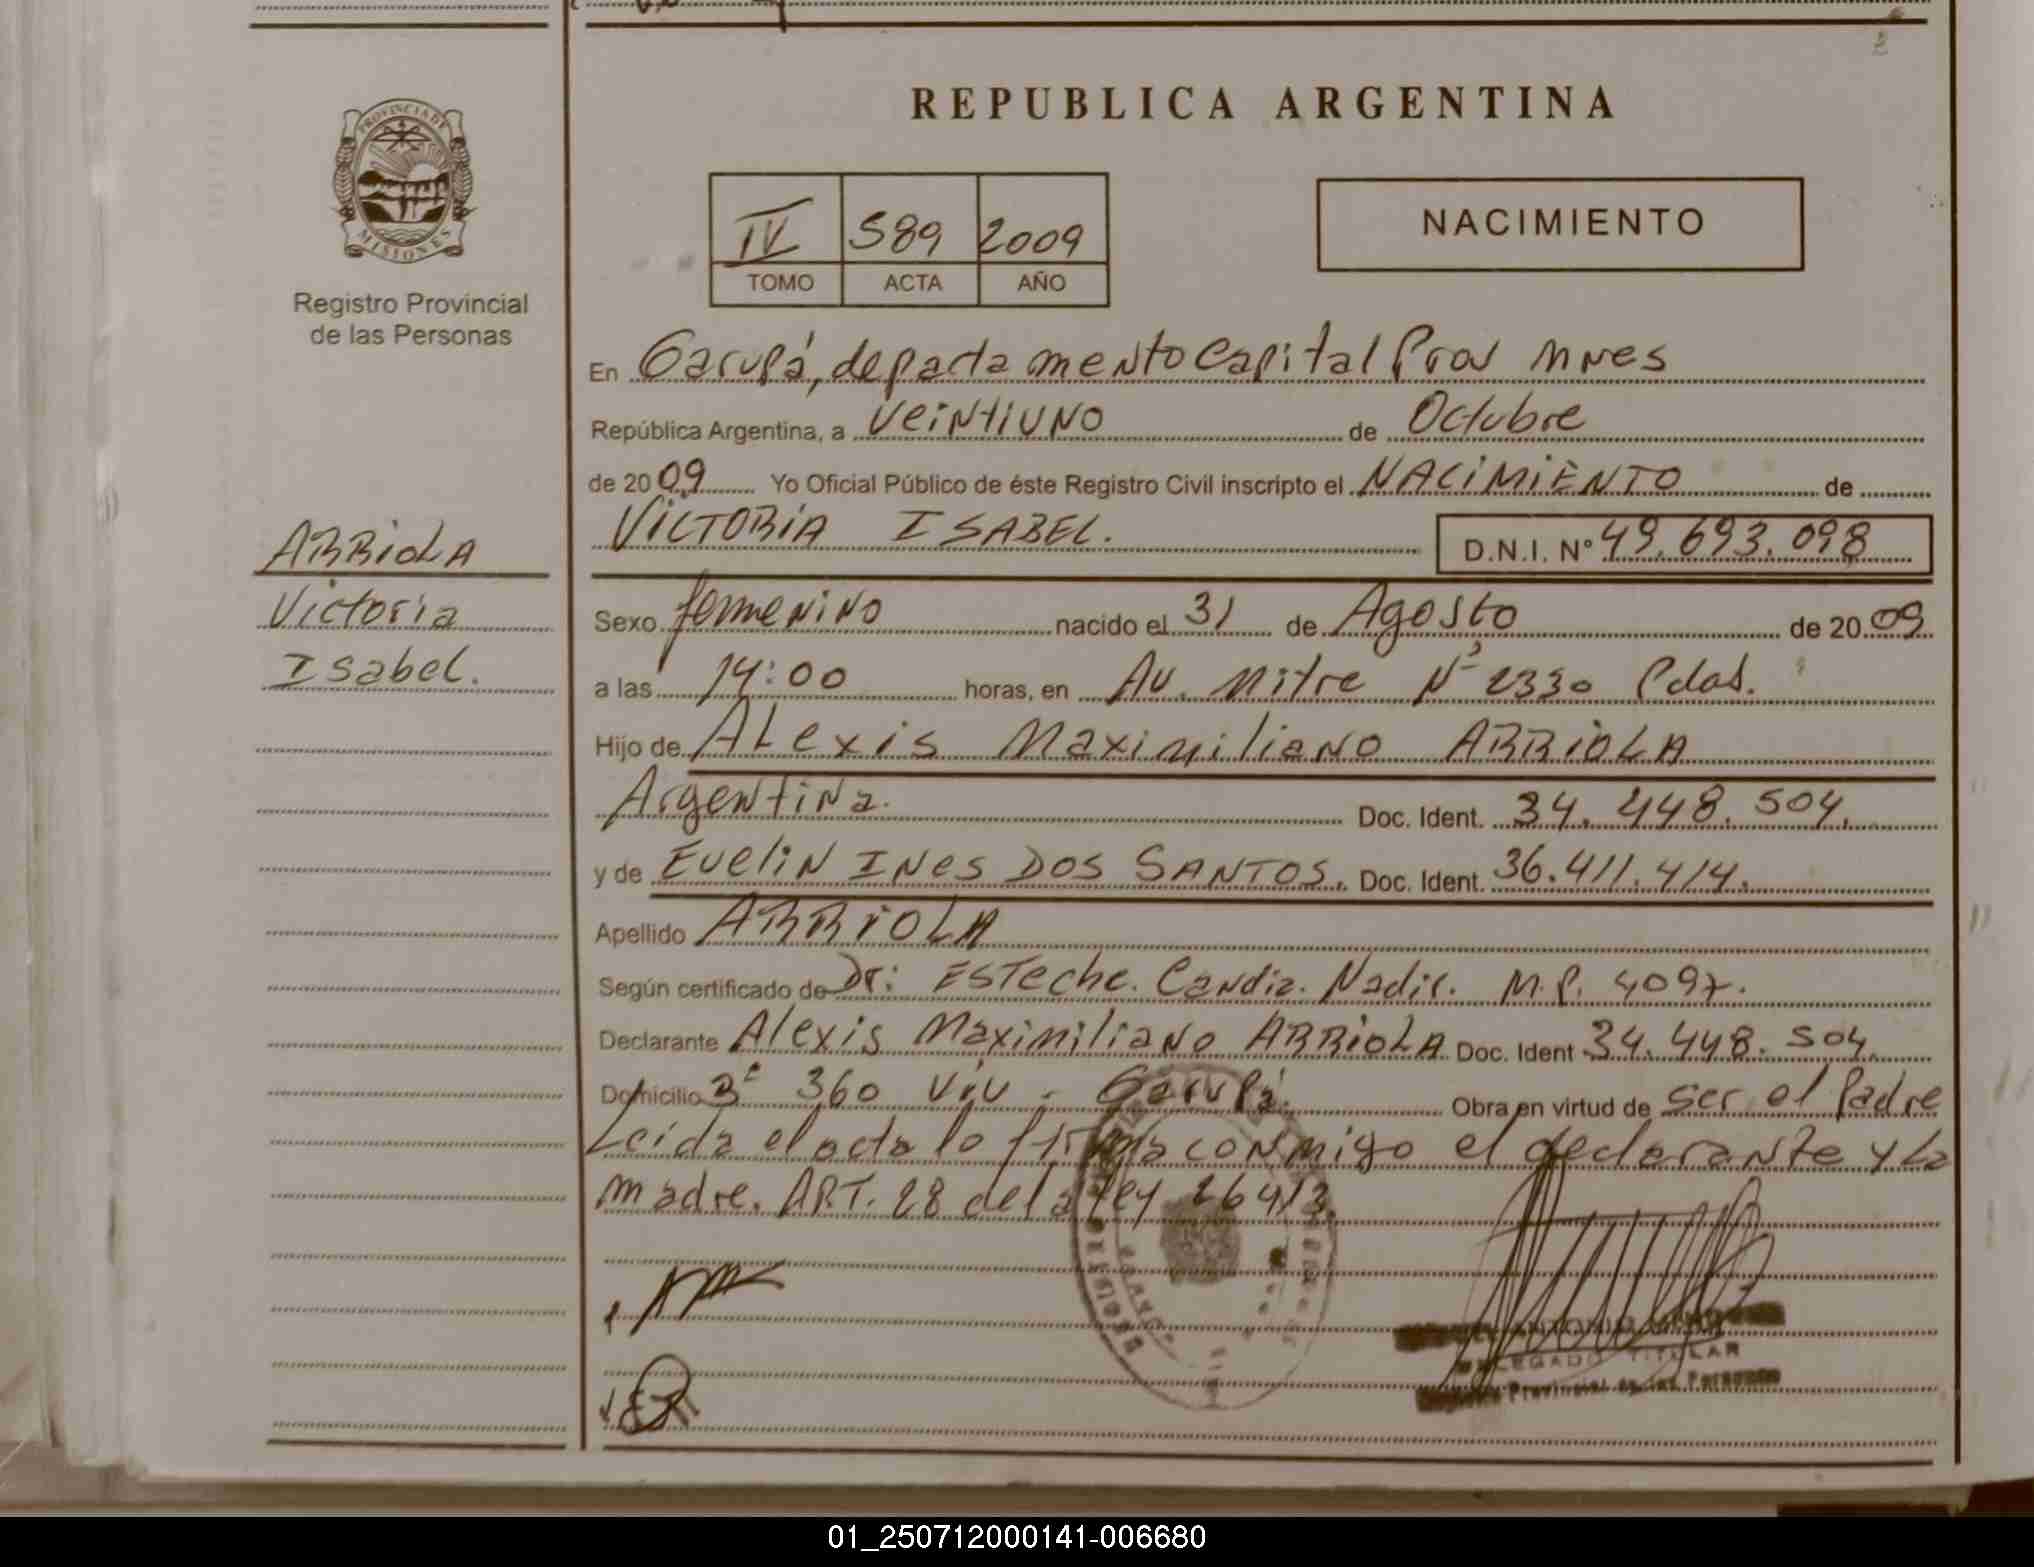 PROVINCIA DE
MISIONES
Registro Provincial
de las Personas
ARRIOLA
Victoria
Isabel.
REPUBLICA ARGENTINA
IV 589 2009
TOMO ACTA AÑO
NACIMIENTO
En Garupá, departamento Capital Prov Mnes
República Argentina, a veintiuno de Octubre
de 2009 Yo Oficial Público de éste Registro Civil inscripto el NACIMIENTO de
VICTORIA ISABEL. D.N.I. N° 49.693.098
Sexo femenino nacido el 31 de Agosto de 2009
a las 14:00 horas, en Av. Mitre N° 2330 Pdas.
Hijo de Alexis Maximiliano ARRIOLA
Argentina. Doc. Ident. 34.448.504.
y de Evelin Ines DOS SANTOS. Doc. Ident. 36.411.414.
Apellido ARRIOLA
Según certificado de Dr: Esteche. Candia. Nadir. M.P. 4097.
Declarante Alexis Maximiliano ARRIOLA Doc. Ident 34.448.504.
Domicilio 360 Viv - Garupá. Obra en virtud de ser el Padre
Leida el acta lo firma conmigo el declarante y la
madre. ART. 28 de la ley 26413.
ANTONIO
DELEGADO TITULAR
Provincial de las Personas
01_250712000141-006680